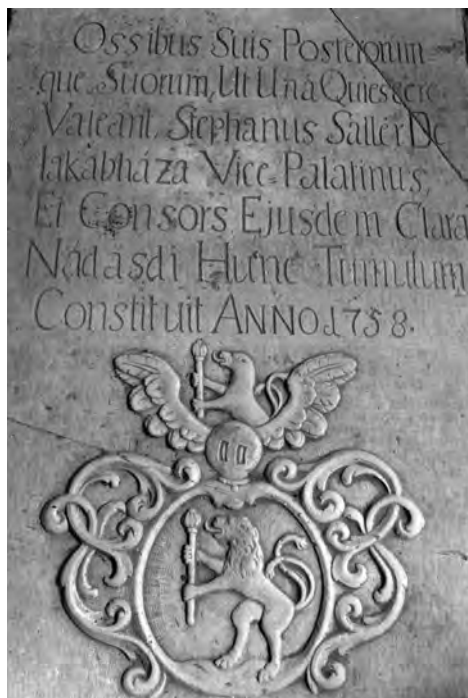 Ossibus Suis Posterorum
que Suorum, Ut Unà Quiescere
Valeant, Stephanus Sallér De
Iakábháza Vice-Palatinus,
Et Consors Ejusdem Clara
Nádásdi Hunc Tumulum
Constituit ANNO 1758.